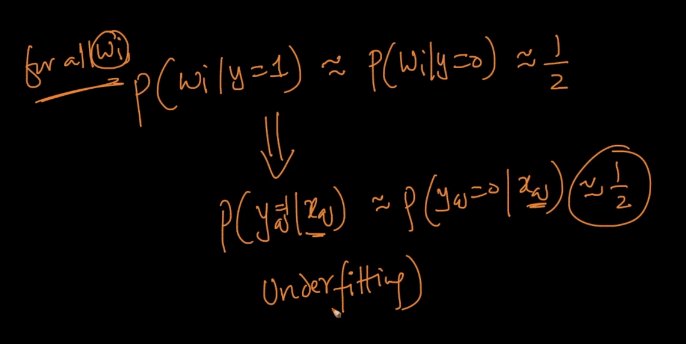 for all wi
P(wi|y=1) ≈ P(wi|y=0) ≈ 1/2
⇓
P(yq=1|xq) ≈ P(yq=0|xq) ≈ 1/2
Underfitting)